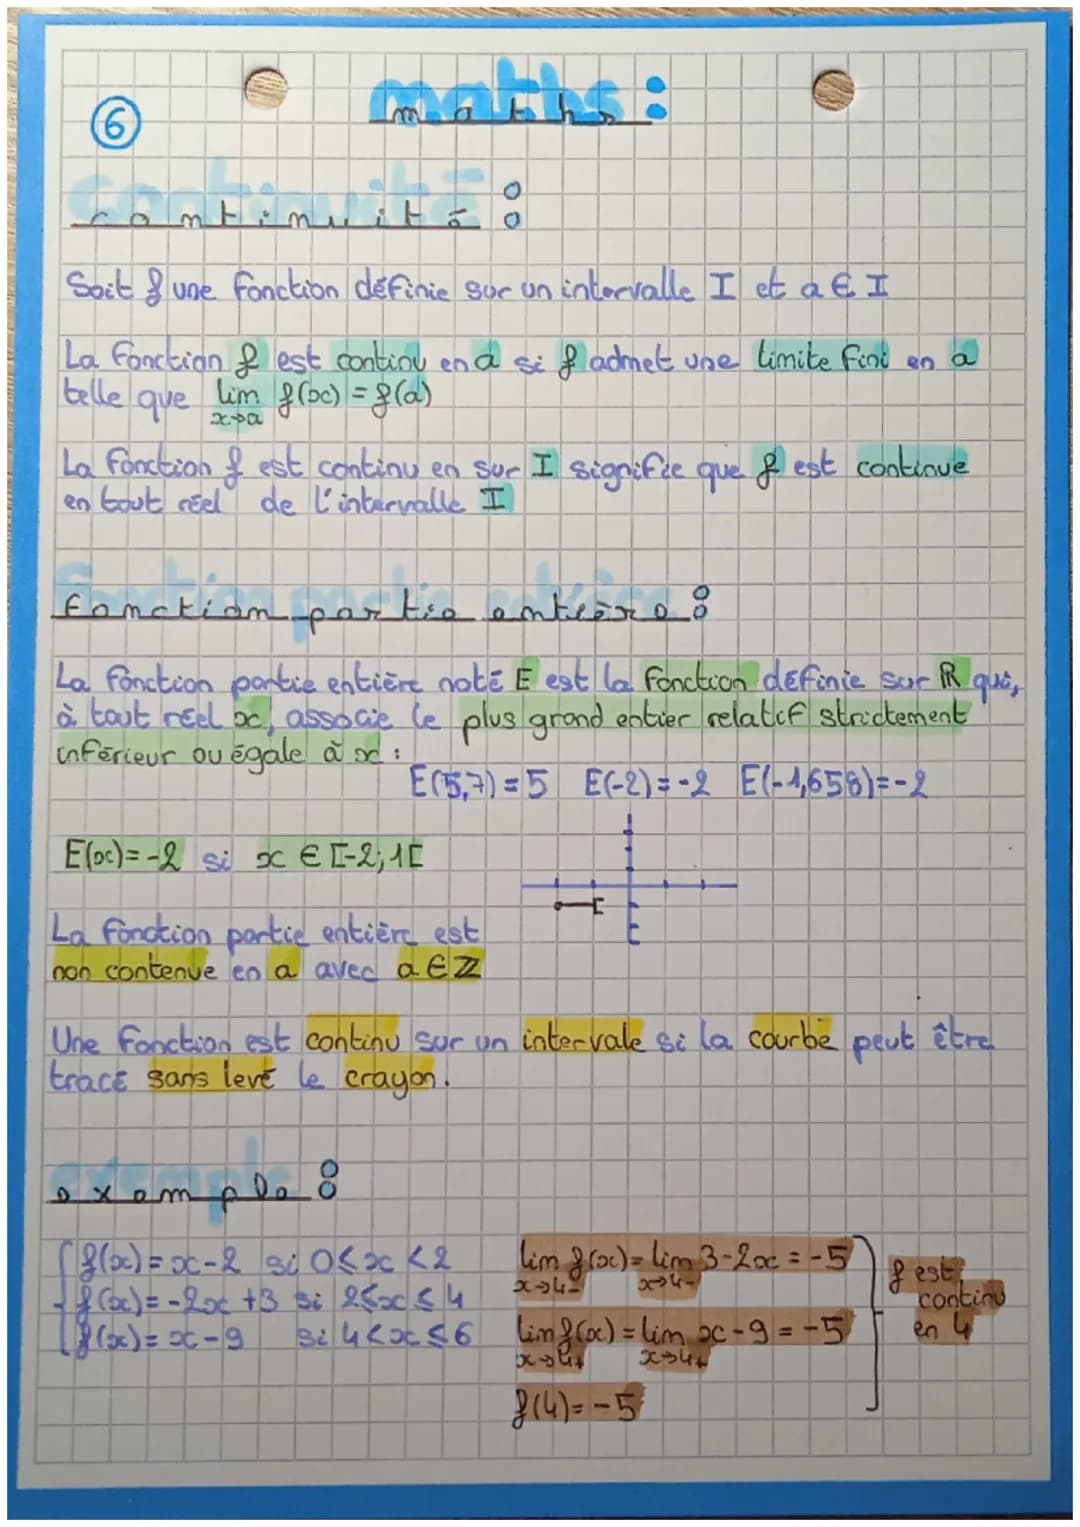 6
maths :
continuité :
Soit f une fonction définie sur un intervalle I et a ∈ I
La fonction f est continu en a si f admet une limite fini en a
telle que lim f(x) = f(a)
x→a
La fonction f est continu en sur I signifie que f est continue
en tout réel de l'intervalle I
fonction partie entière :
La fonction partie entière noté E est la fonction définie sur ℝ qui,
à tout réel x, associe le plus grand entier relatif strictement
inférieur ou égale à x :
E(5,7) = 5 E(-2) = -2 E(-1,658) = -2
E(x) = -2 si x ∈ [-2; 1[
La fonction partie entière est
non contenue en a avec a ∈ ℤ
Une fonction est continu sur un intervale si la courbe peut être
tracé sans levé le crayon.
exemple :
f(x) = x-2 si 0 ≤ x < 2
f(x) = -2x +3 si 2 ≤ x ≤ 4
f(x) = x-9 si 4 < x ≤ 6
lim f(x) = lim 3-2x = -5
x→4- x→4-
lim f(x) = lim x-9 = -5
x→4+ x→4+
f(4) = -5
f est
continu
en 4